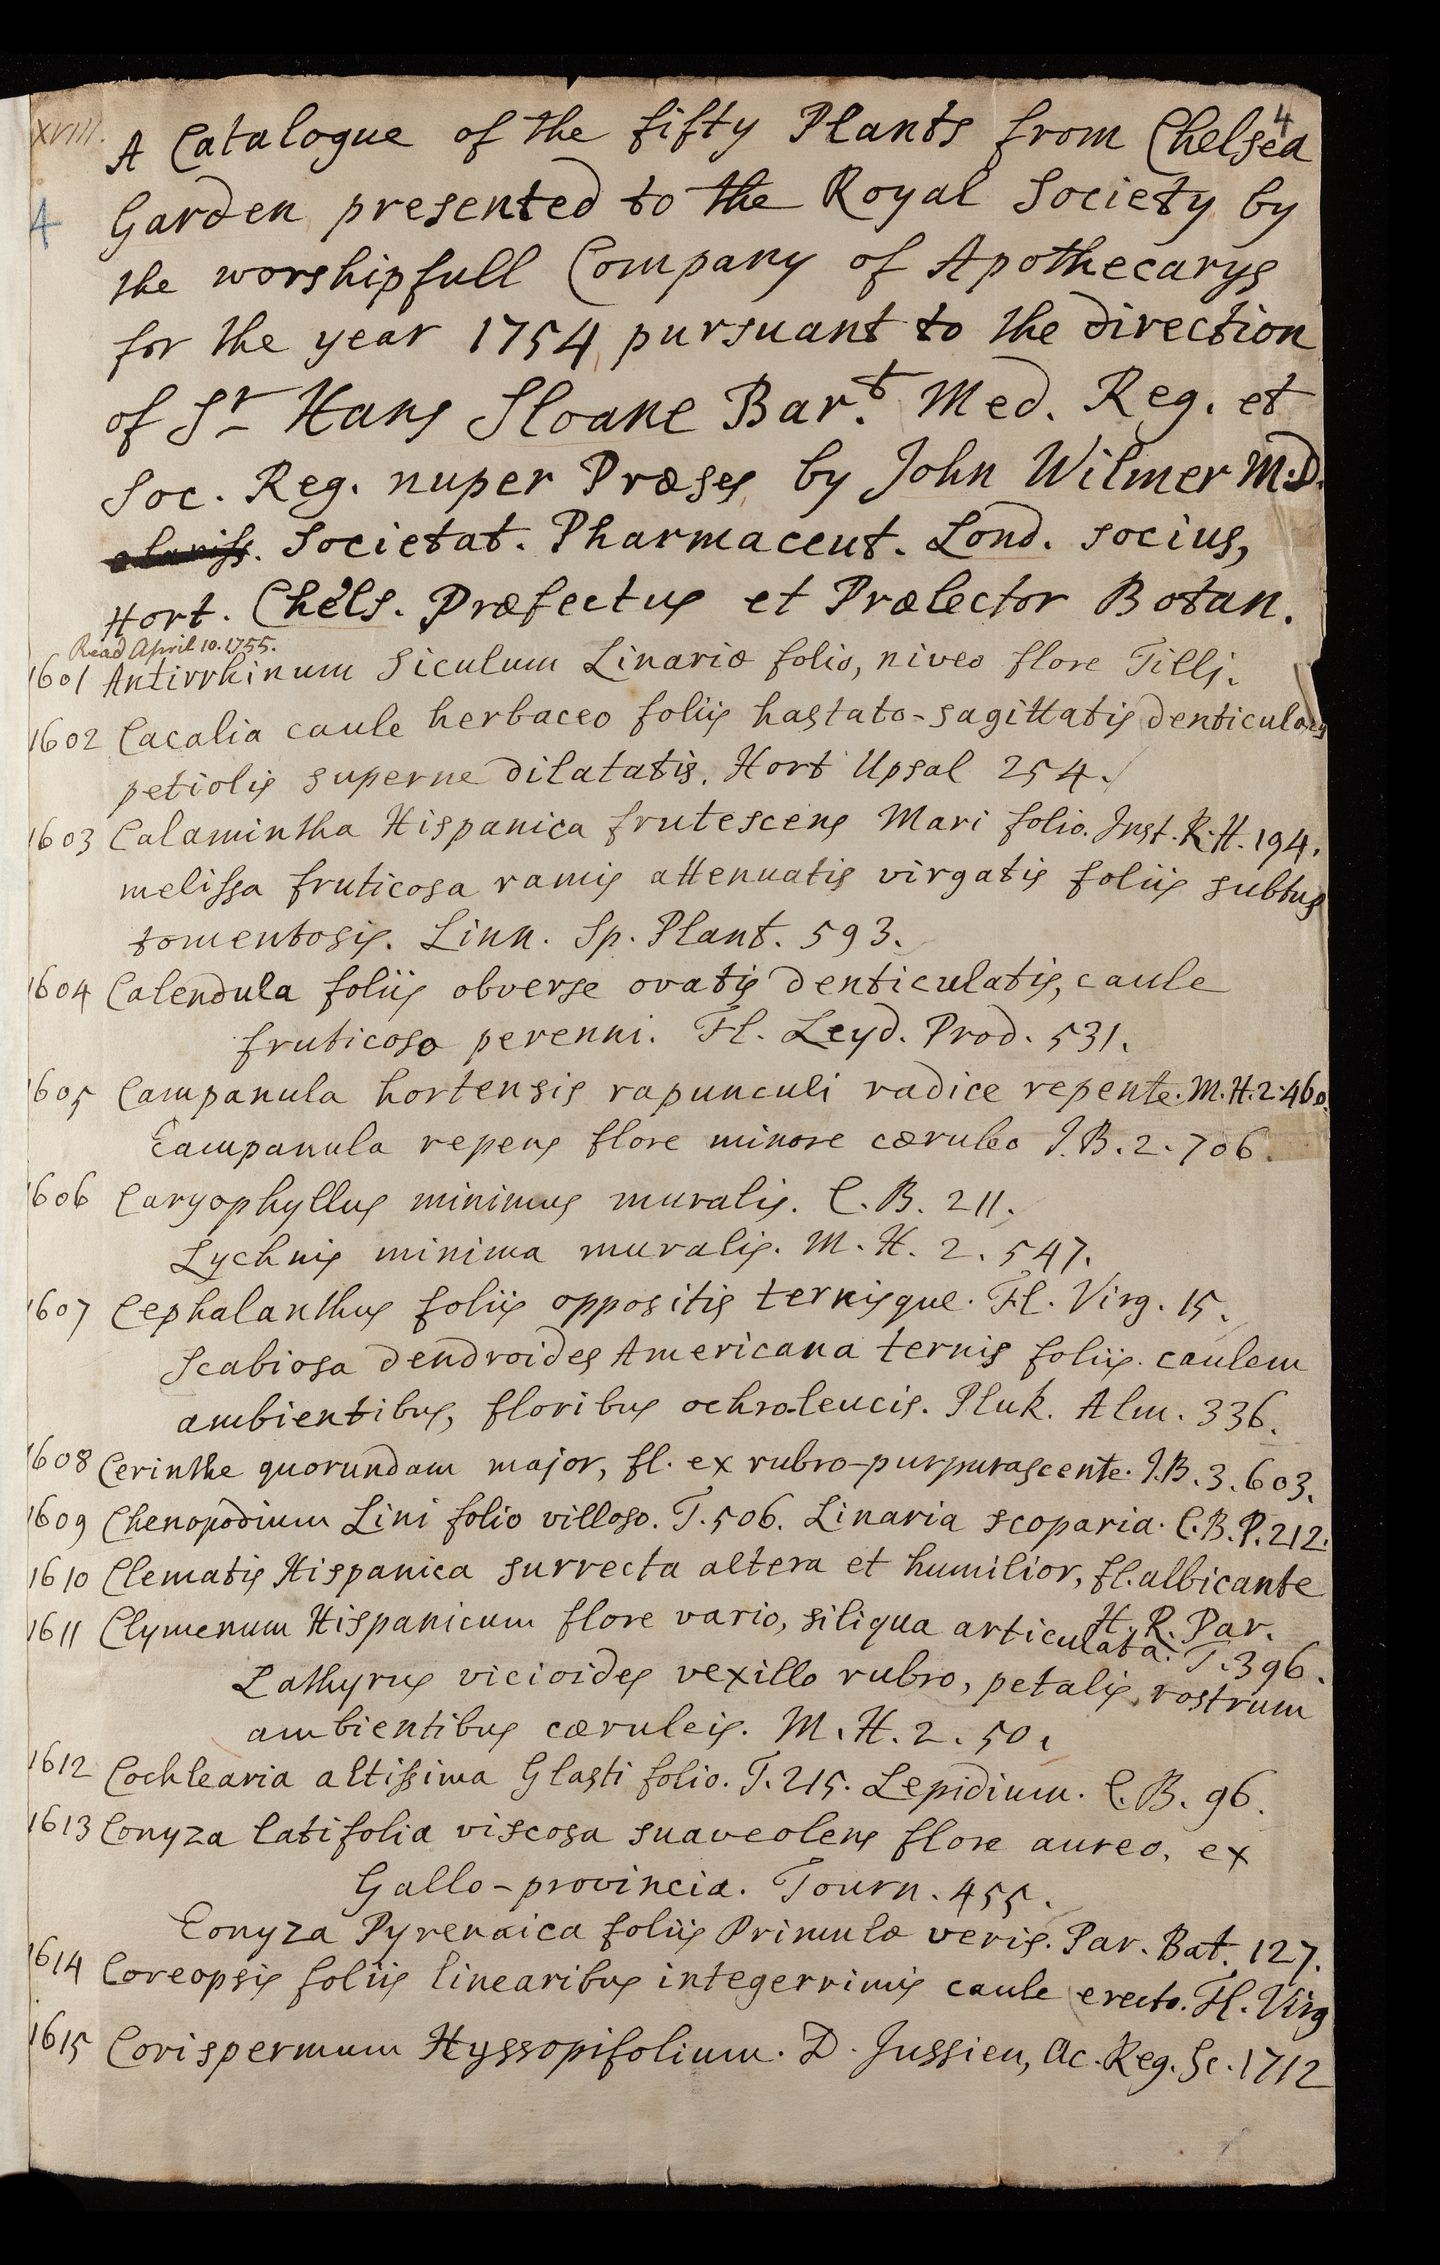 xviii.
4
4
A Catalogue of the fifty Plants from Chelsea
Garden presented to the Royal Society by
the worshipfull Company of Apothecarys
for the year 1754 pursuant to the direction
of Sr Hans Sloane Bar.t Med. Reg. et
Soc. Reg. nuper Præses by John Wilmer M.D.
clariss. Societat. Pharmaceut. Lond. socius,
Hort. Chels. Præfectus et Prælector Botan.
Read April 10. 1755.
1601 Antirrhinum Siculum Linariæ folio, niveo flore Tilli.
1602 Cacalia caule herbaceo foliis hastato-sagittatis denticulatis
petiolis superne dilatatis. Hort Upsal 254.
1603 Calamintha Hispanica frutescens Mari folio. Inst. R. H. 194.
melissa fruticosa ramis attenuatis virgatis foliis subtus
tomentosis. Linn. Sp. Plant. 593.
1604 Calendula foliis obverse ovatis denticulatis, caule
fruticoso perenni. Fl. Leyd. Prod. 531.
1605 Campanula hortensis rapunculi radice repente. M. H. 2. 460.
Campanula repens flore minore cæruleo I. B. 2. 706.
1606 Caryophyllus minimus muralis. C. B. 211.
Lychnis minima muralis. M. H. 2. 547.
1607 Cephalanthus foliis oppositis ternisque. Fl. Virg. 15.
Scabiosa dendroides Americana ternis foliis caulem
ambientibus, floribus ochroleucis. Pluk. Alm. 336.
1608 Cerinthe quorundam major, fl. ex rubro-purpurascente. I. B. 3. 603.
1609 Chenopodium Lini folio villoso. T. 506. Linaria scoparia. C. B. P. 212.
1610 Clematis Hispanica surrecta altera et humilior, fl. albicante
H. R. Par.
1611 Clymenum Hispanicum flore vario, siliqua articulata. T. 396.
Lathyrus vicioides vexillo rubro, petalis rostrum
ambientibus cæruleis. M. H. 2. 50.
1612 Cochlearia altissima Glasti folio. T. 215. Lepidium. C. B. 96.
1613 Conyza latifolia viscosa suaveolens flore aureo, ex
Gallo-provincia. Tourn. 455.
Conyza Pyrenaica foliis Primulæ veris. Par. Bat. 127.
1614 Coreopsis foliis linearibus integerrimis caule erecto. Fl. Virg
1615 Corispermum Hyssopifolium. D. Jussieu, Ac. Reg. Sc. 1712